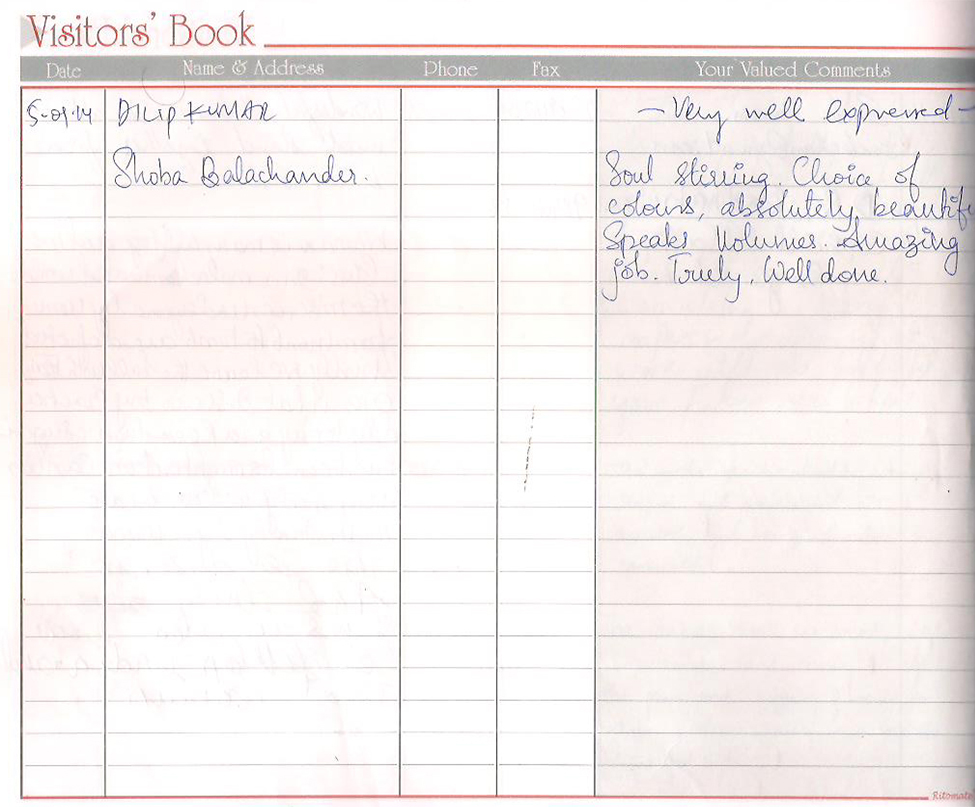 Visitors' Book
Date Name & Address Phone Fax Your Valued Comments
5-01-14 DILIP KUMAR – Very well expressed –
Shoba Balachander. Soul stirring. Choice of
colours, absolutely, beautif
Speaks Volumes. Amazing
job. Truely, Well done.
Ritomate